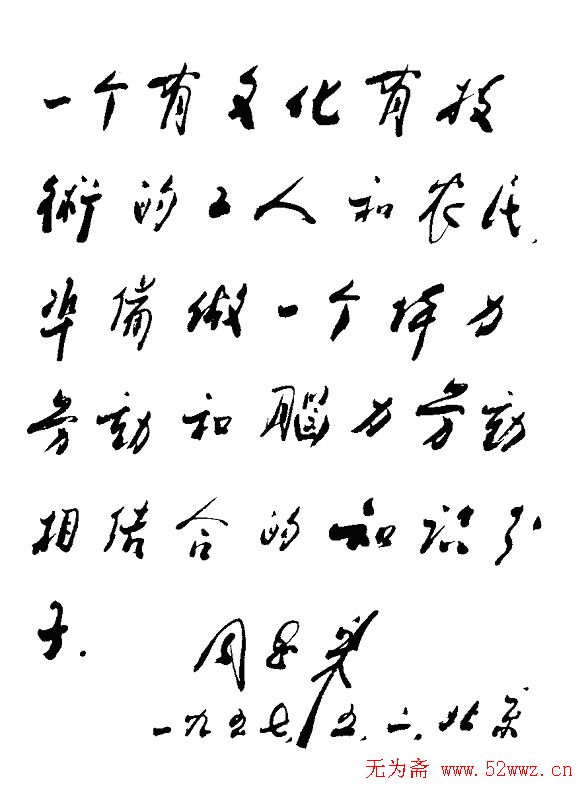 一个有文化有技
術的工人和农民,
準備做一个体力
劳动和腦力劳动
相结合的知识分
子.
周恩来
一九五七,五,二,北京
无为斋 www.52wwz.cn